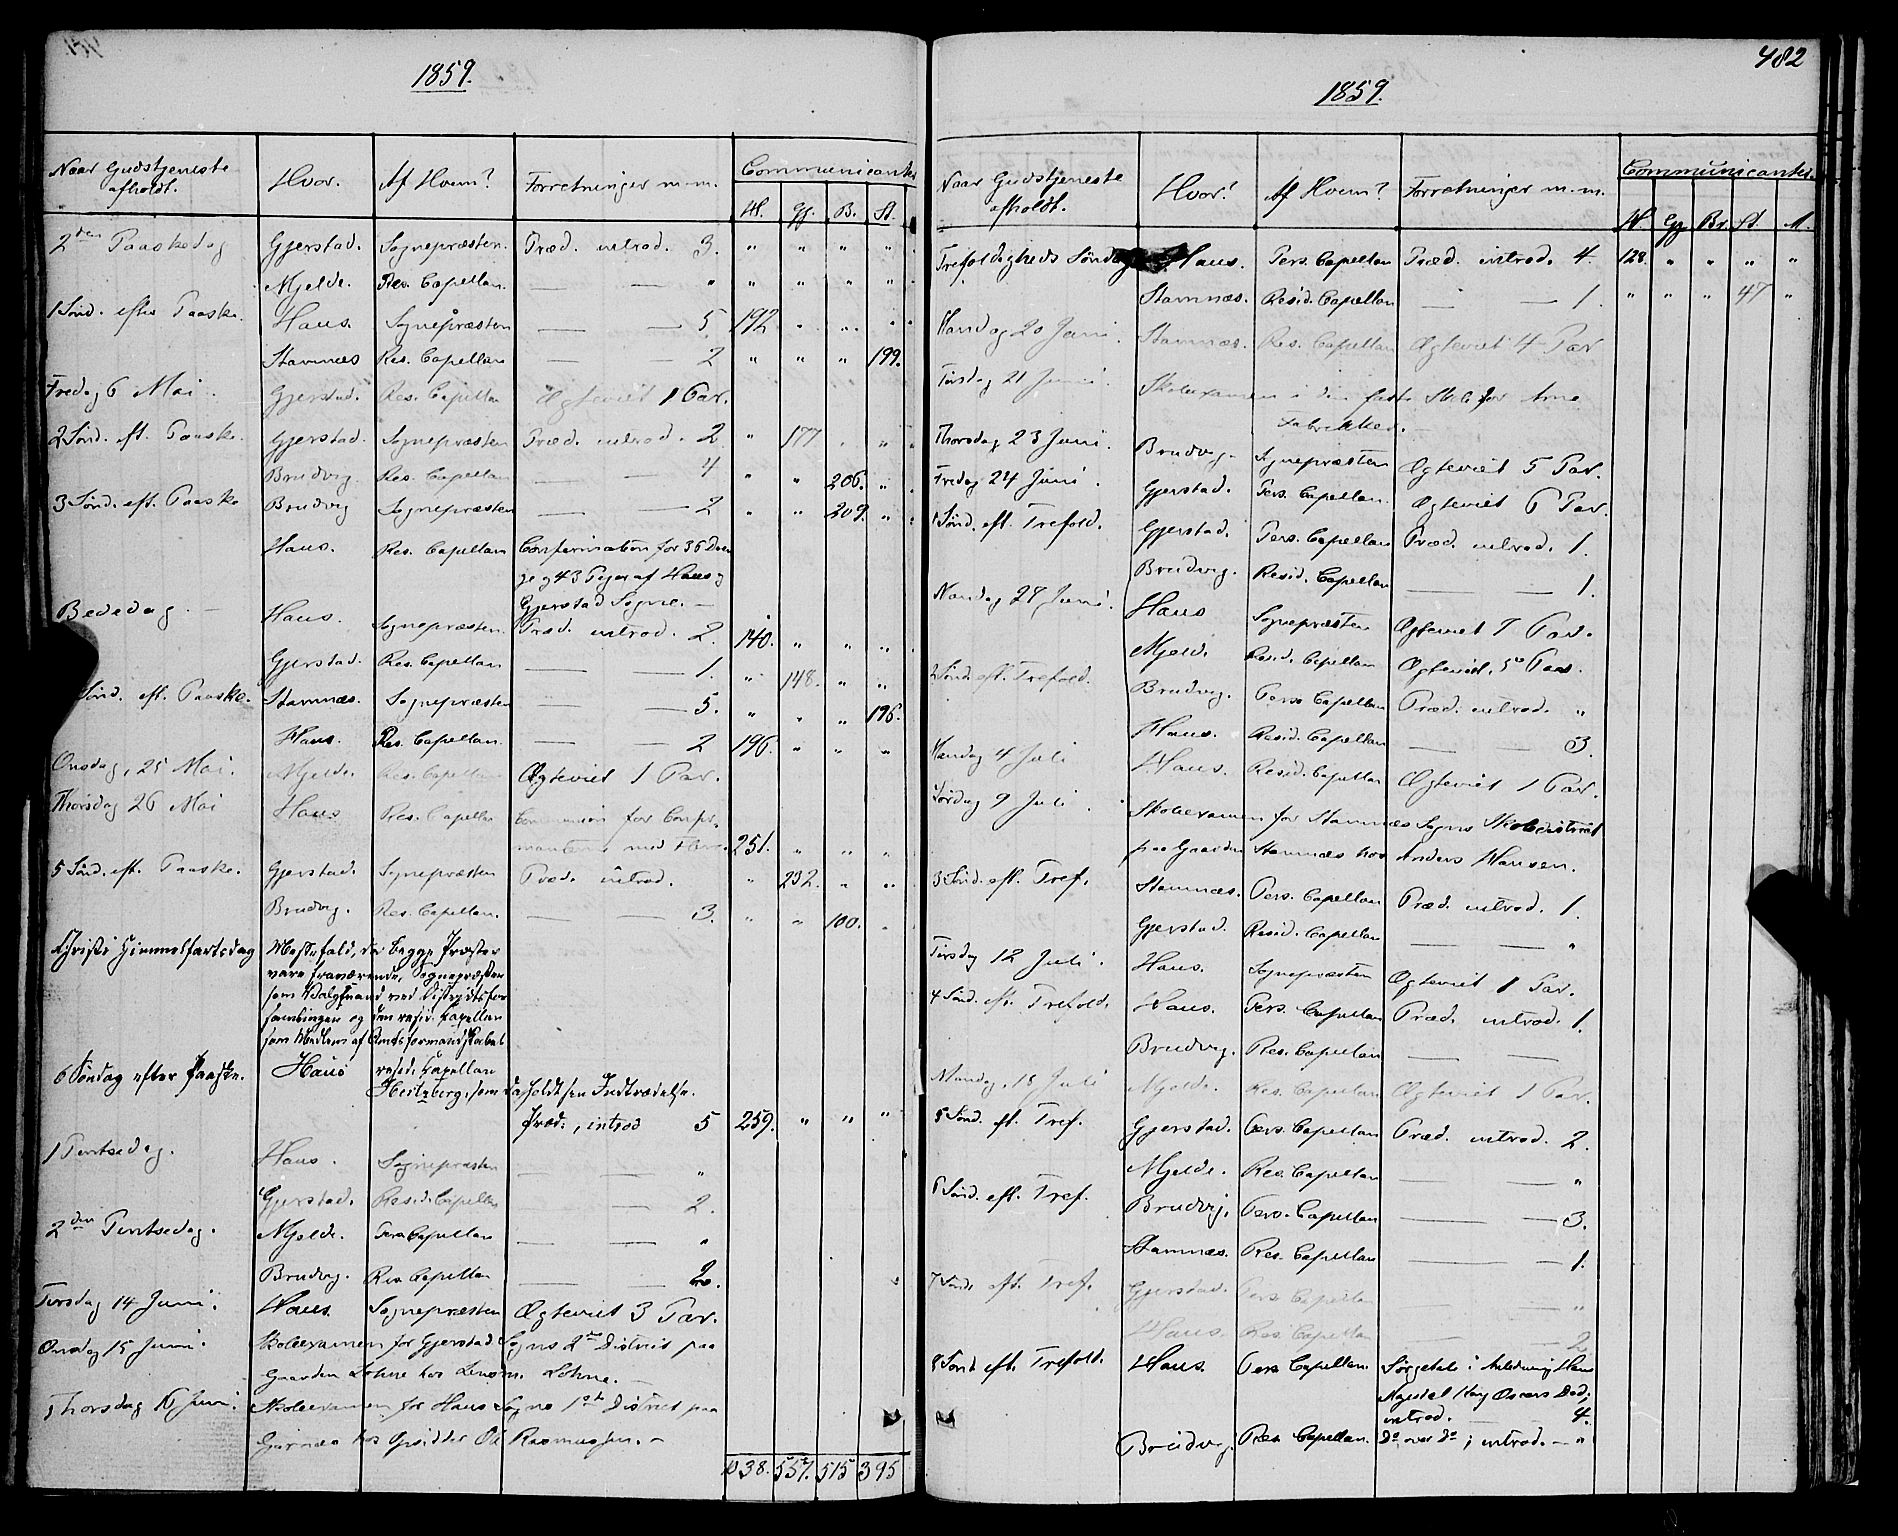 1859.
Naar Gudstjeneste afholdt. Hvor. Af Hvem? Forretninger m.m. Communicanter
H. Gj. B. St.
2den Paaskedag Gjerstad. Sognepræsten. Præd. introd. 3. " " " "
Mjelde. Res. Capellan. — — " " " " "
1 Sønd. efter Paaske. Haus. Sognepræsten — — 5 192 " " "
Stamnæs Res. Capellan — — 2 " " " 199.
Fredag 6 Mai. Gjerstad. Res. Capellan Ægteviet 1 Par.
2 Sønd. eft. Paaske. Gjerstad. Sognepræsten Præd. introd. 2 " 177 " "
Brudvig. Res. Capellan — — 4 " " 206. "
3 Sønd. eft. Paaske Brudvig Sognepræsten — — 2 " " 209. "
Haus. Res. Capellan Confirmation for 36 Dren
ge og 43 Piger af Haus og
Gjerstad Sogne. —
Bededag. — Haus. Sognepræsten. Præd. introd. 2. 140. " " "
Gjerstad. Res. Capellan — — 1. " 148. " "
Sønd. eft. Paaske. Stamnæs. Sognepræsten — — 5. " " " 196.
Haus. Res. Capellan. — — 2 196. " " "
Onsdag, 25 Mai. Mjelde. Res. Capellan Ægteviet 1 Par.
Thorsdag 26 Mai Haus Res. Capellan Communion for Confir-
manterne med Flere. 251. " " "
5 Sønd. eft. Paaske. Gjerstad. Sognepræsten Præd. introd. " 232. " "
Brudvig. Res. Capellan. — — 3. " " 100. "
Christi Himmelfartsdag Messefald, da begge Præster
vare fraværende, Sognepræsten
som Valgmand ved Districtsfor
samlingen og den resid. Capellan
som Medlem af Amtsformandskabet
6 Søndag efter Paaske. Haus resid. Capellan
Hertzberg, som da holdt sin Indtrædelse.
Præd:, introd 5 259. " " "
1 Pintsedag. Haus. Sognepræsten — — "
Gjerstad. Resid. Capellan — — 2.
2den Pintsedag. Mjelde. Pers Capellan — — "
Brudvig. Res. Capellan — — 2.
Tirsdag 14 Juni. Haus. Sognepræsten Ægteviet 3 Par.
Onsdag 15 Juni. Skoleexamen for Gjerstad Sogns 2det District paa
Gaarden Lohne hos Lensm. Lohne. —
Thorsdag 16 Juni. Skoleexamen for Haus Sogns 1ste District paa
hos Opsidder Ole Rasmussen. —
1038. 557. 515 395
482
1859.
Naar Gudstjeneste afholdt. Hvor? Af Hvem? Forretninger m.m. Communicanter.
H. Gj Br. St. A.
Trefoldigheds Søndag Haus. Pers. Capellan Præd. introd. 4. 128. " " " "
Stamnæs. Resid. Capellan — — 1. " " " 47 "
Mandag 20 Juni. Stamnæs. Res. Capellan Ægteviet 4 Par
Tirsdag 21 Juni. Skoleexamen i den faste Skole for Arne
Fabrikker. —
Thorsdag 23 Juni. Brudvig. Sognepræsten Ægteviet 5 Par.
Fredag 24 Juni. Gjerstad. Pers. Capellan. Ægteviet 6 Par.
1 Sønd. eft. Trefold. Gjerstad. Pers. Capellan Præd. introd. 1.
Brudvig. Resid. Capellan — — 1.
Mandag 27 Juni. Haus Sognepræsten Ægteviet 7 Par.
Mjelde Resid. Capellan Ægteviet. 5 Par.
2 Sønd. eft. Trefold. Brudvig. Pers Capellan Præd. introd. "
Haus. Resid. Capellan — — 3.
Mandag 4 Juli Haus. Resid. Capellan Ægteviet 1 Par.
Lørdag 9 Juli. Skoleexamen for Stamnæs Sogns Skoledistrict
paa Gaarden Stamnæs hos Anders Hansen.
3 Sønd. eft. Tref. Stamnæs. Pers. Capellan Præd. introd. 1.
Gjerstad. Resid. Capellan — — "
Tirsdag 12 Juli. Haus. Sognepræsten Ægteviet 1 Par.
4 Sønd. eft. Trefold. Haus. Pers. Capellan Præd. introd. 1.
Brudvig. Res. Capellan — —
Mandag. 18 Juli Mjelde. Res. Capellan Ægteviet 1 Par.
5 Sønd. eft. Tref. Gjerstad. Pers. Capellan Præd. introd. 2.
Mjelde. Res. Capellan — — "
6 Sønd. eft. Tref. Brudvig. Pers. Capellan — — 3.
Stamnæs. Res. Capellan — — 1.
7 Sønd. eft. Tref. Gjerstad. Pers Capellan — — "
Haus. Res. Capellan — — 2
8 Sønd eft. Trefold. Haus. Pers Capellan. Sørgetale i Anledning Hans
Majestæt Kong Oscars Død,
introd. — — 4.
Brudvig. Res. Capellan. Do over do; introd. — "